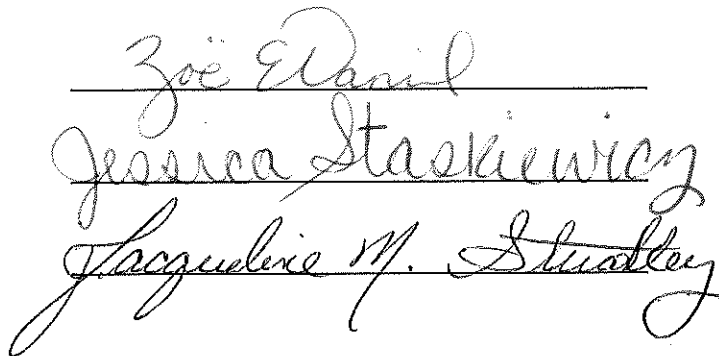 Zoë E Daniel
Jessica Staskiewicz
Jacqueline M. Studley